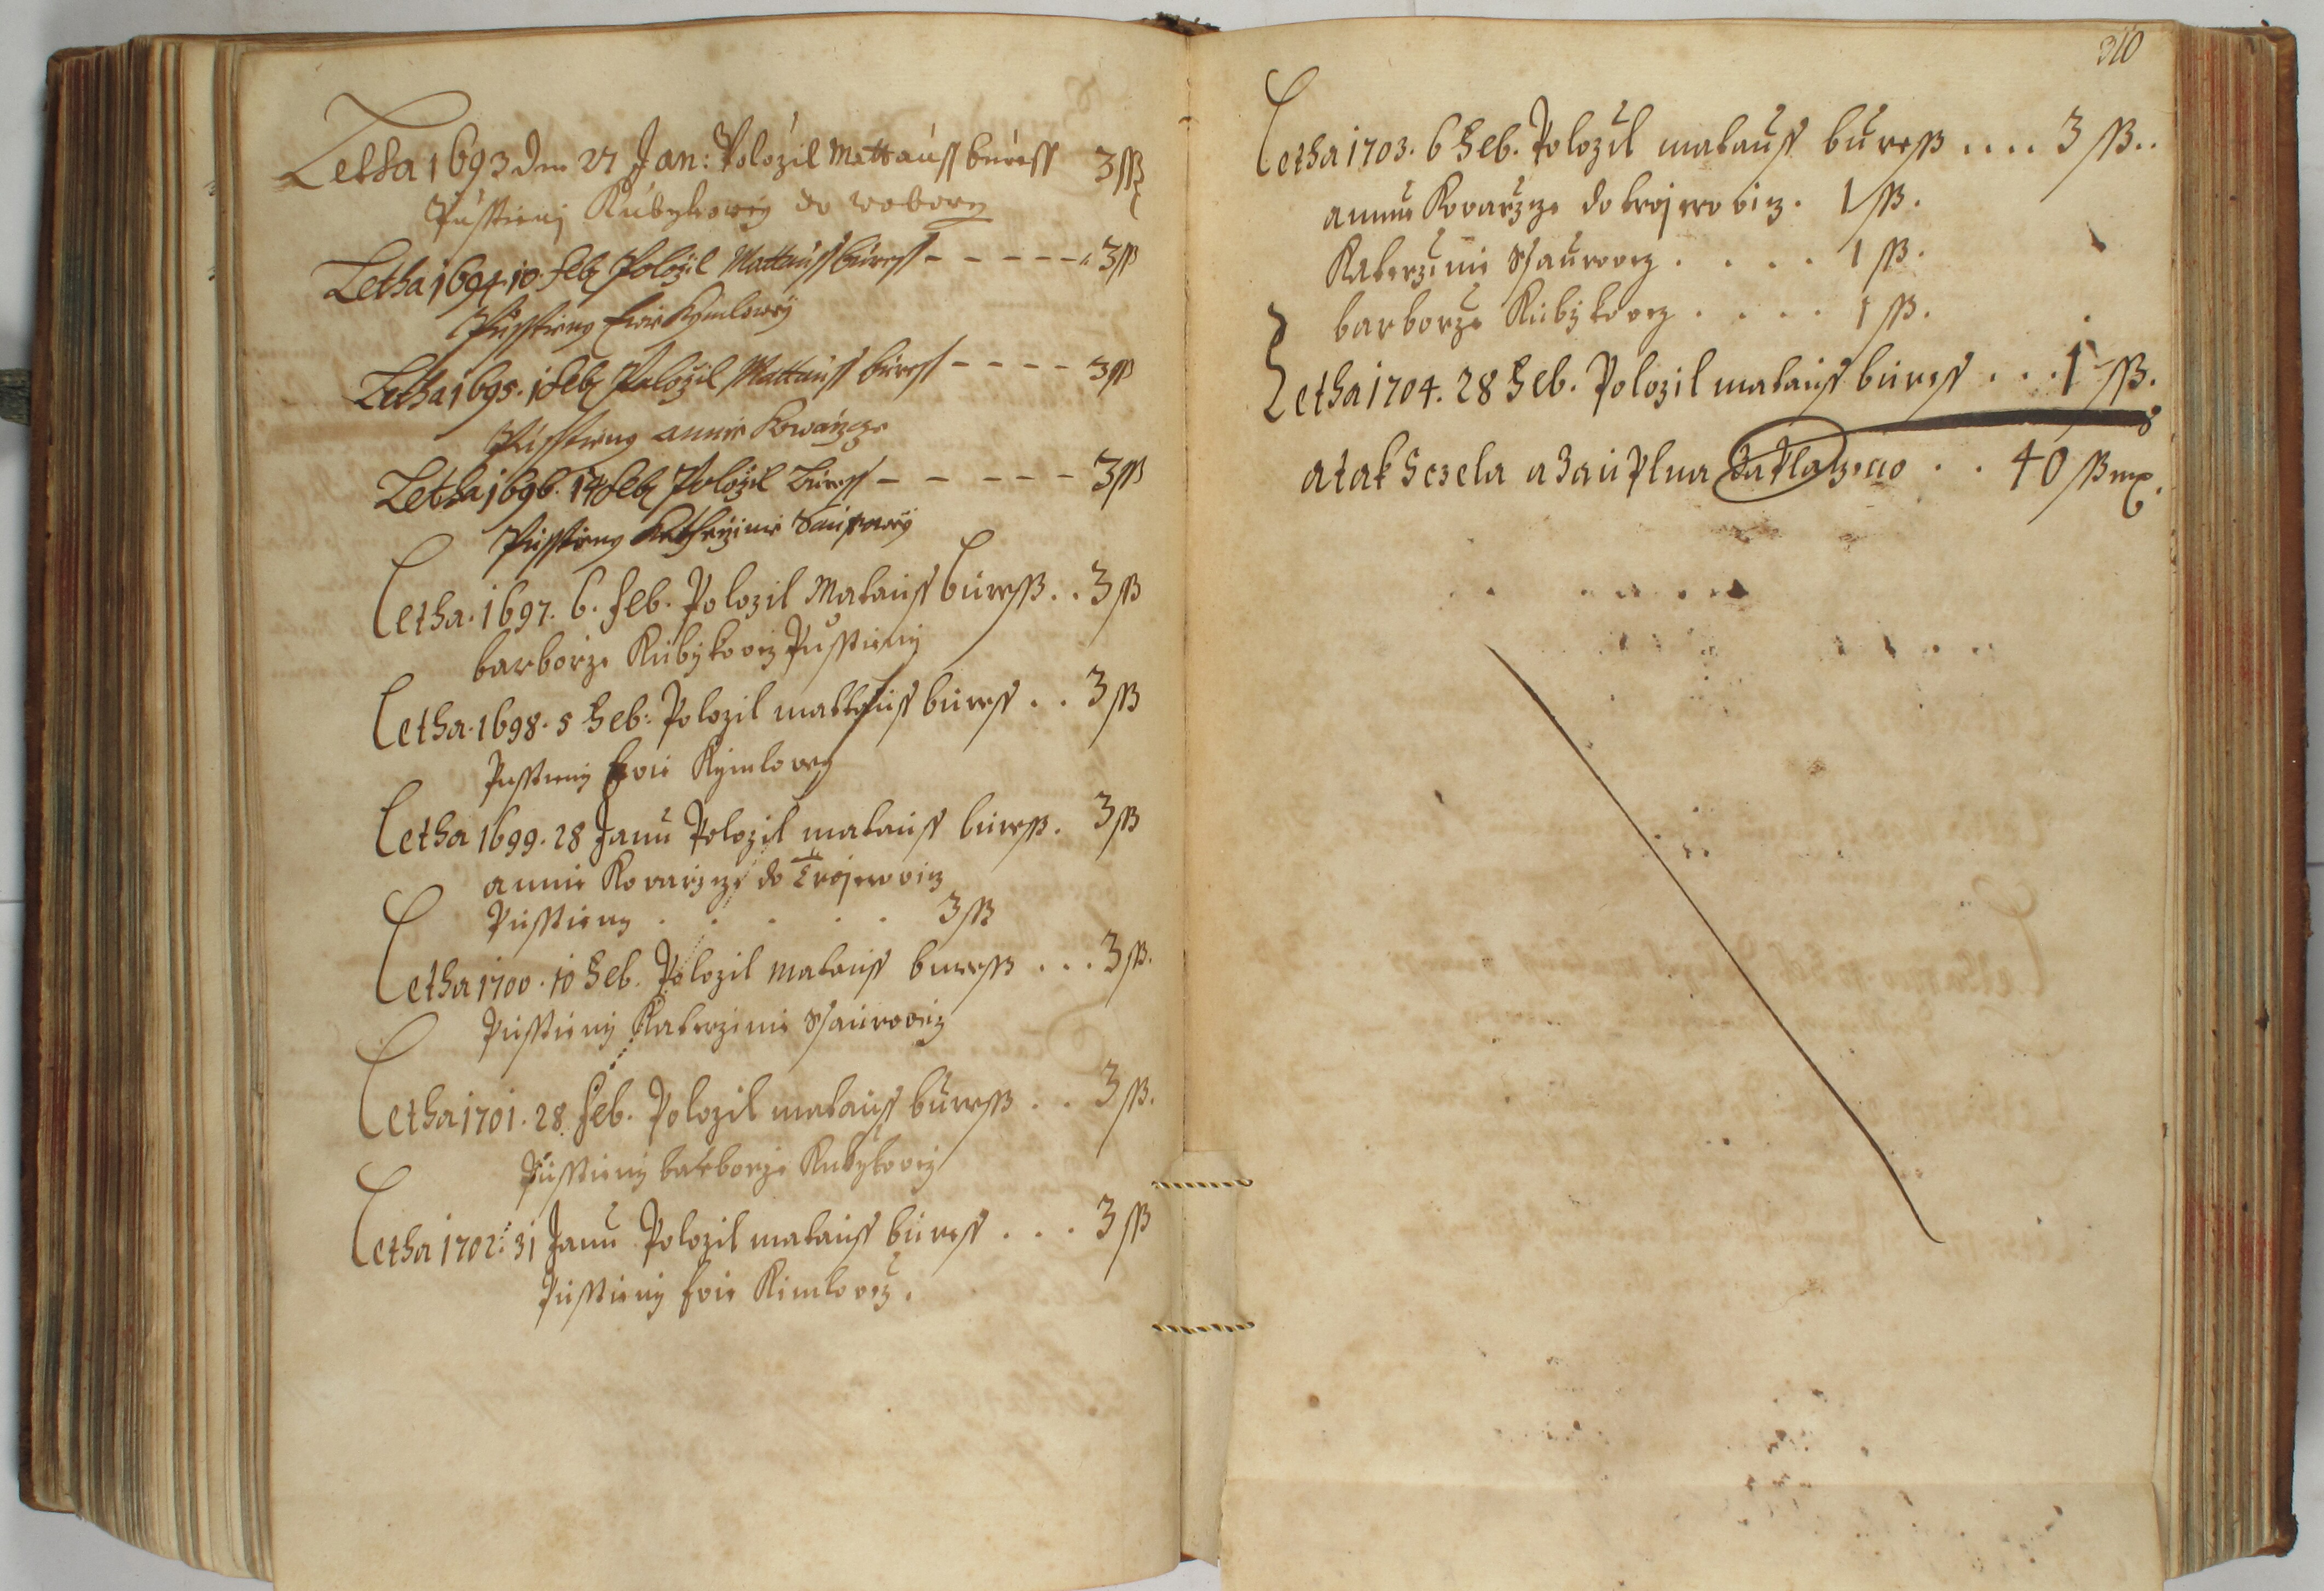 Letha 1693 den 27 Jan: Polozil Mattauss buress 3 ss
Pusstieni Kubykowy do wobory
Letha 1694. 10. Feb Polozil Mattauss buress - - - - - 3 ss
Pusstieny Ewie Kymlowy
Letha 1695. 1 Feb Polozil Mattauss buress - - - - 3 ss
Pusstieny annie Kowarzge
Letha 1696. 14 Feb Polozil Buress - - - - - 3 ss
Pusstieny Katherzinie Saurowy
Letha. 1697. 6. Feb. Polozil Matauss buress . . 3 ss
barborze Kubykovy Pusstieny
Letha. 1698. 5 Feb: Polozil mattauss buress . . 3 ss
Pusstieny Evie Kymlovy
Letha 1699. 28 Janu Polozil matauss buress. 3 ss
annie Kovarzge do Trojerovicz
Pusstieny . . . . . 3 ss
Letha 1700. 10 Feb. Polozil matauss buress . . . 3 ss.
Pusstieny Katerzinie Ssaurovy
Letha 1701. 28. Feb. Polozil matauss buress . . 3 ss.
Pusstieny barborze Kubykovy
Letha 1702. 31 Janu Polozil matauss buress . . . 3 ss
Pusstieny Evie Kimlovy.
310
Letha 1703. 6 Feb. Polozil matauss buress . . . . 3 ss . .
annie Kovarzge do trojerovicz. 1 ss.
Katerzinie Ssaurovy . . . . 1 ss.
barborze Kubykovy . . . . 1 ss.
Letha 1704. 28 Feb. Polozil matauss buress . . . 1 ss.
a tak Sczela a Zauplna zaplaczeno . . 40 ss